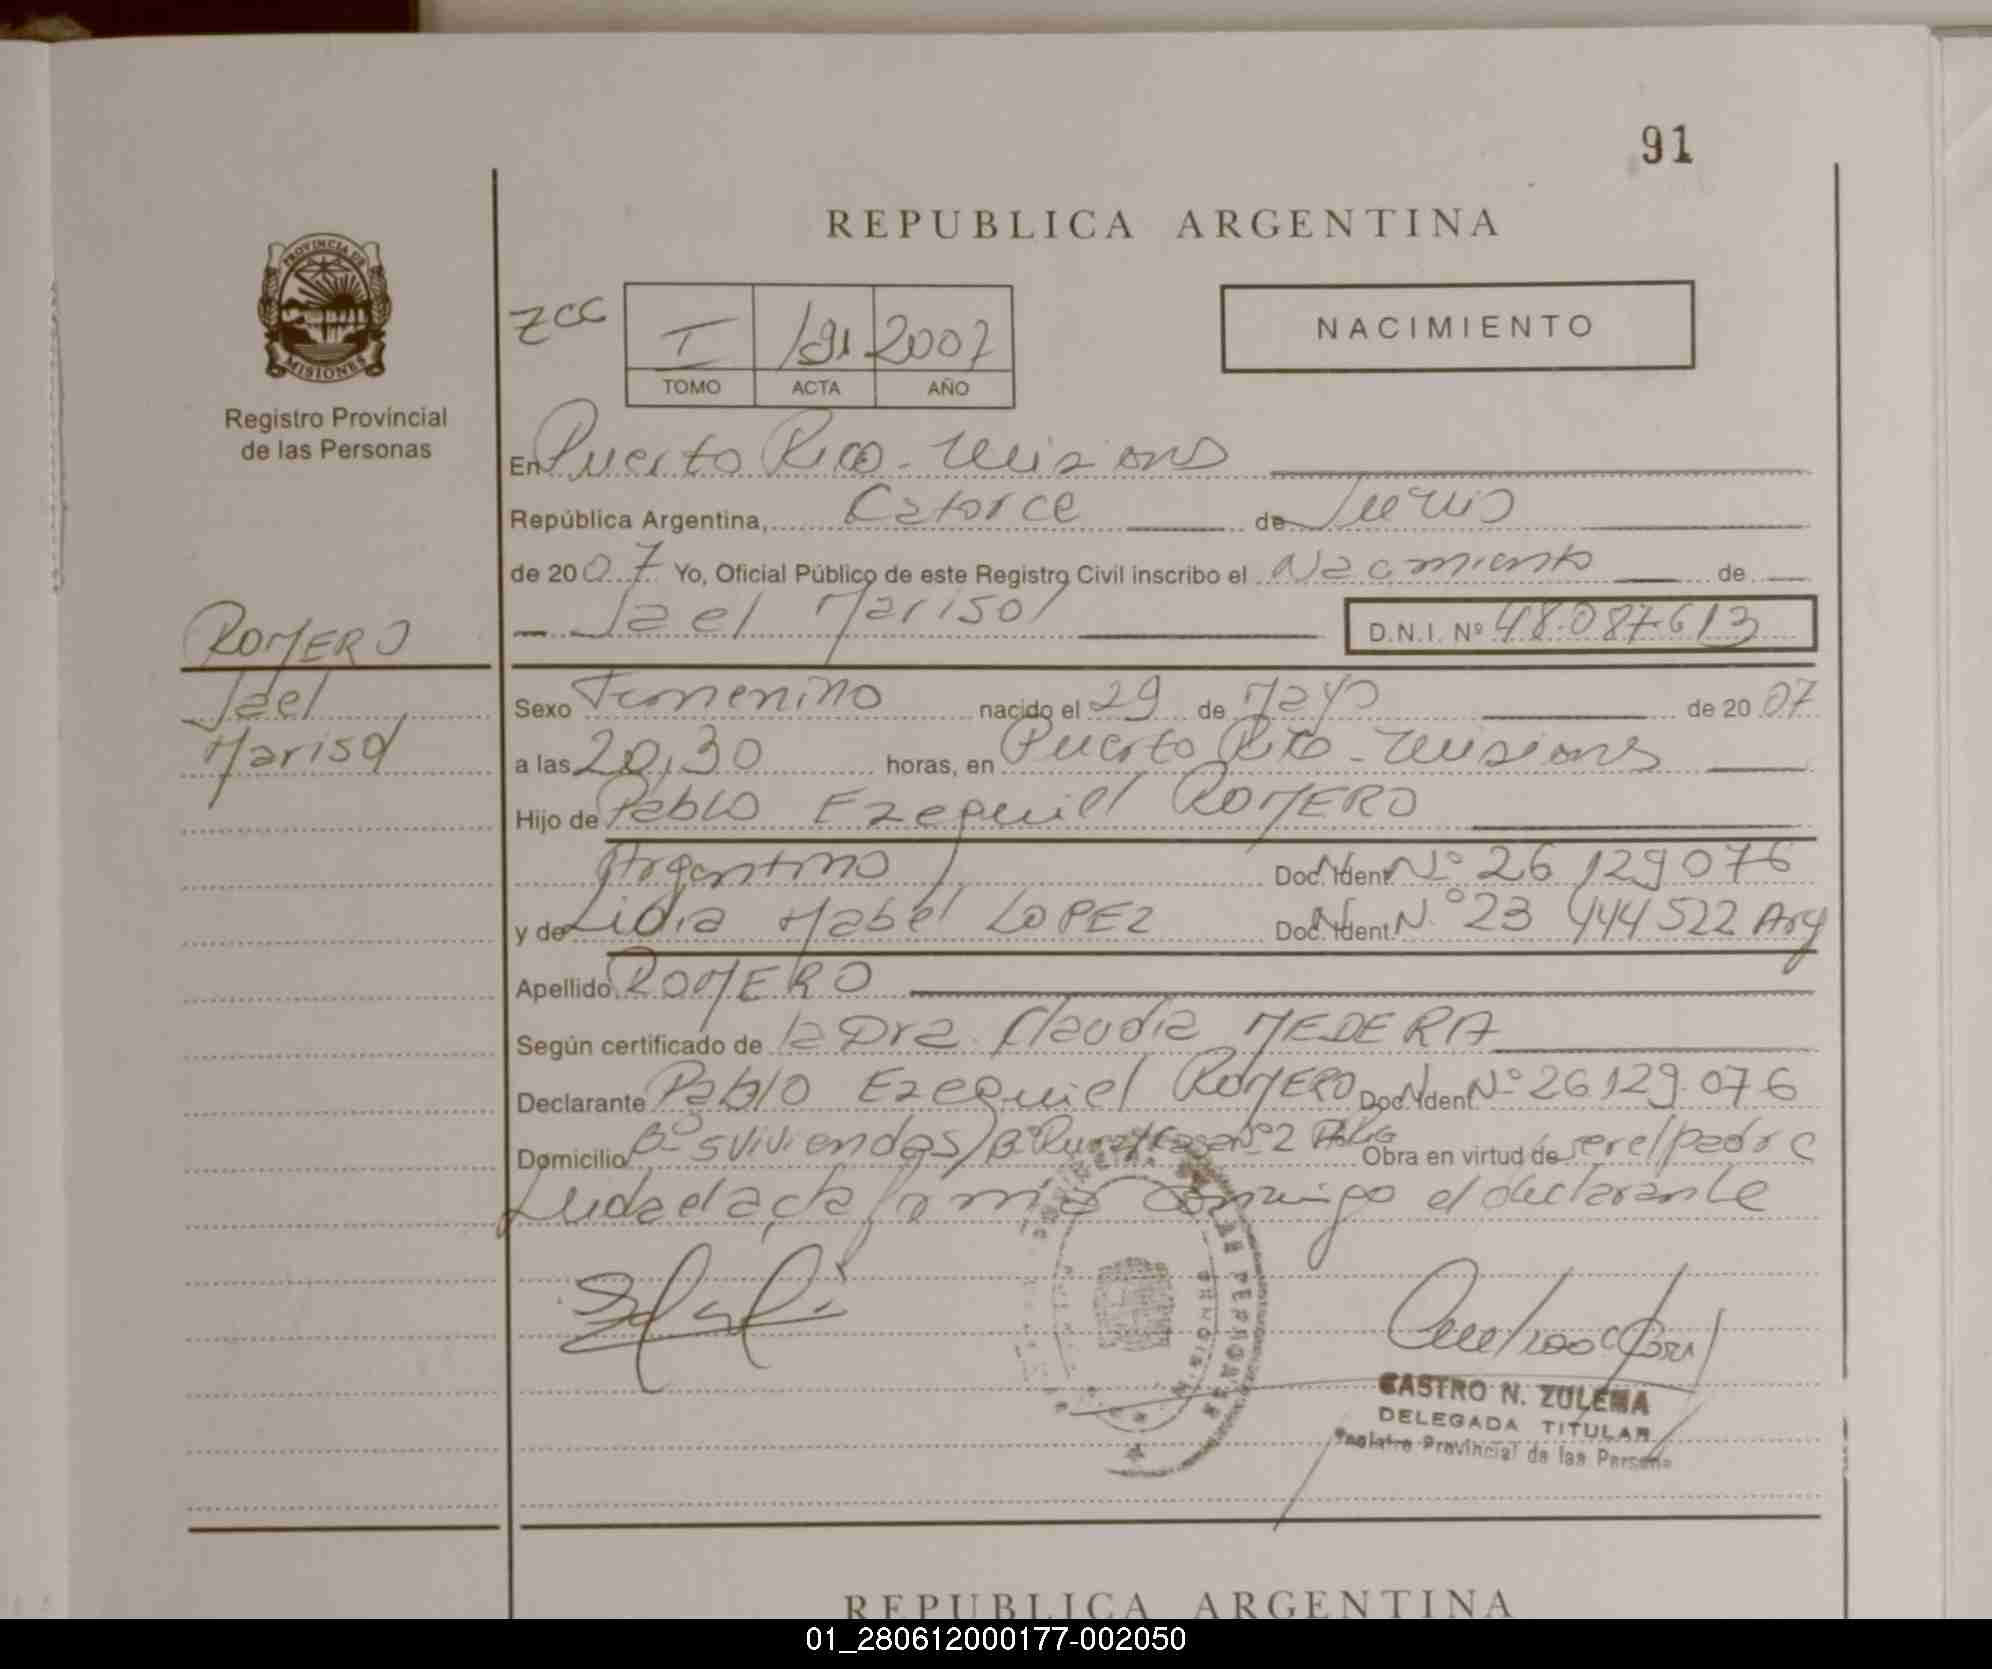 91
REPUBLICA ARGENTINA
PROVINCIA DE
MISIONES
Registro Provincial
de las Personas
zcc
I 191 2007
TOMO ACTA AÑO
NACIMIENTO
En Puerto Rico - Misiones
República Argentina, Catorce de Junio
de 2007 Yo, Oficial Público de este Registro Civil inscribo el Nacimiento de
Jael Marisol D.N.I. Nº 48.087.613
ROMERO
Jael
Marisol
Sexo Femenino nacido el 29 de Mayo de 2007
a las 20,30 horas, en Puerto Rico - Misiones
Hijo de Pablo Ezequiel ROMERO
Argentino Doc. Ident. Nº 26 129 076
y de Lidia Mabel LOPEZ Doc. Ident. Nº 23 444 522 Arg
Apellido ROMERO
Según certificado de la Dra. Claudia MEDERA
Declarante Pablo Ezequiel ROMERO Doc. Ident Nº 26.129.076
Domicilio Bº 5 viviendas Nº 2 Obra en virtud de ser el padre
Leida el acta firma conmigo el declarante
CASTRO N. ZULEMA
DELEGADA TITULAR
Registro Provincial de las Persona
REPUBLICA ARGENTINA
01_280612000177-002050